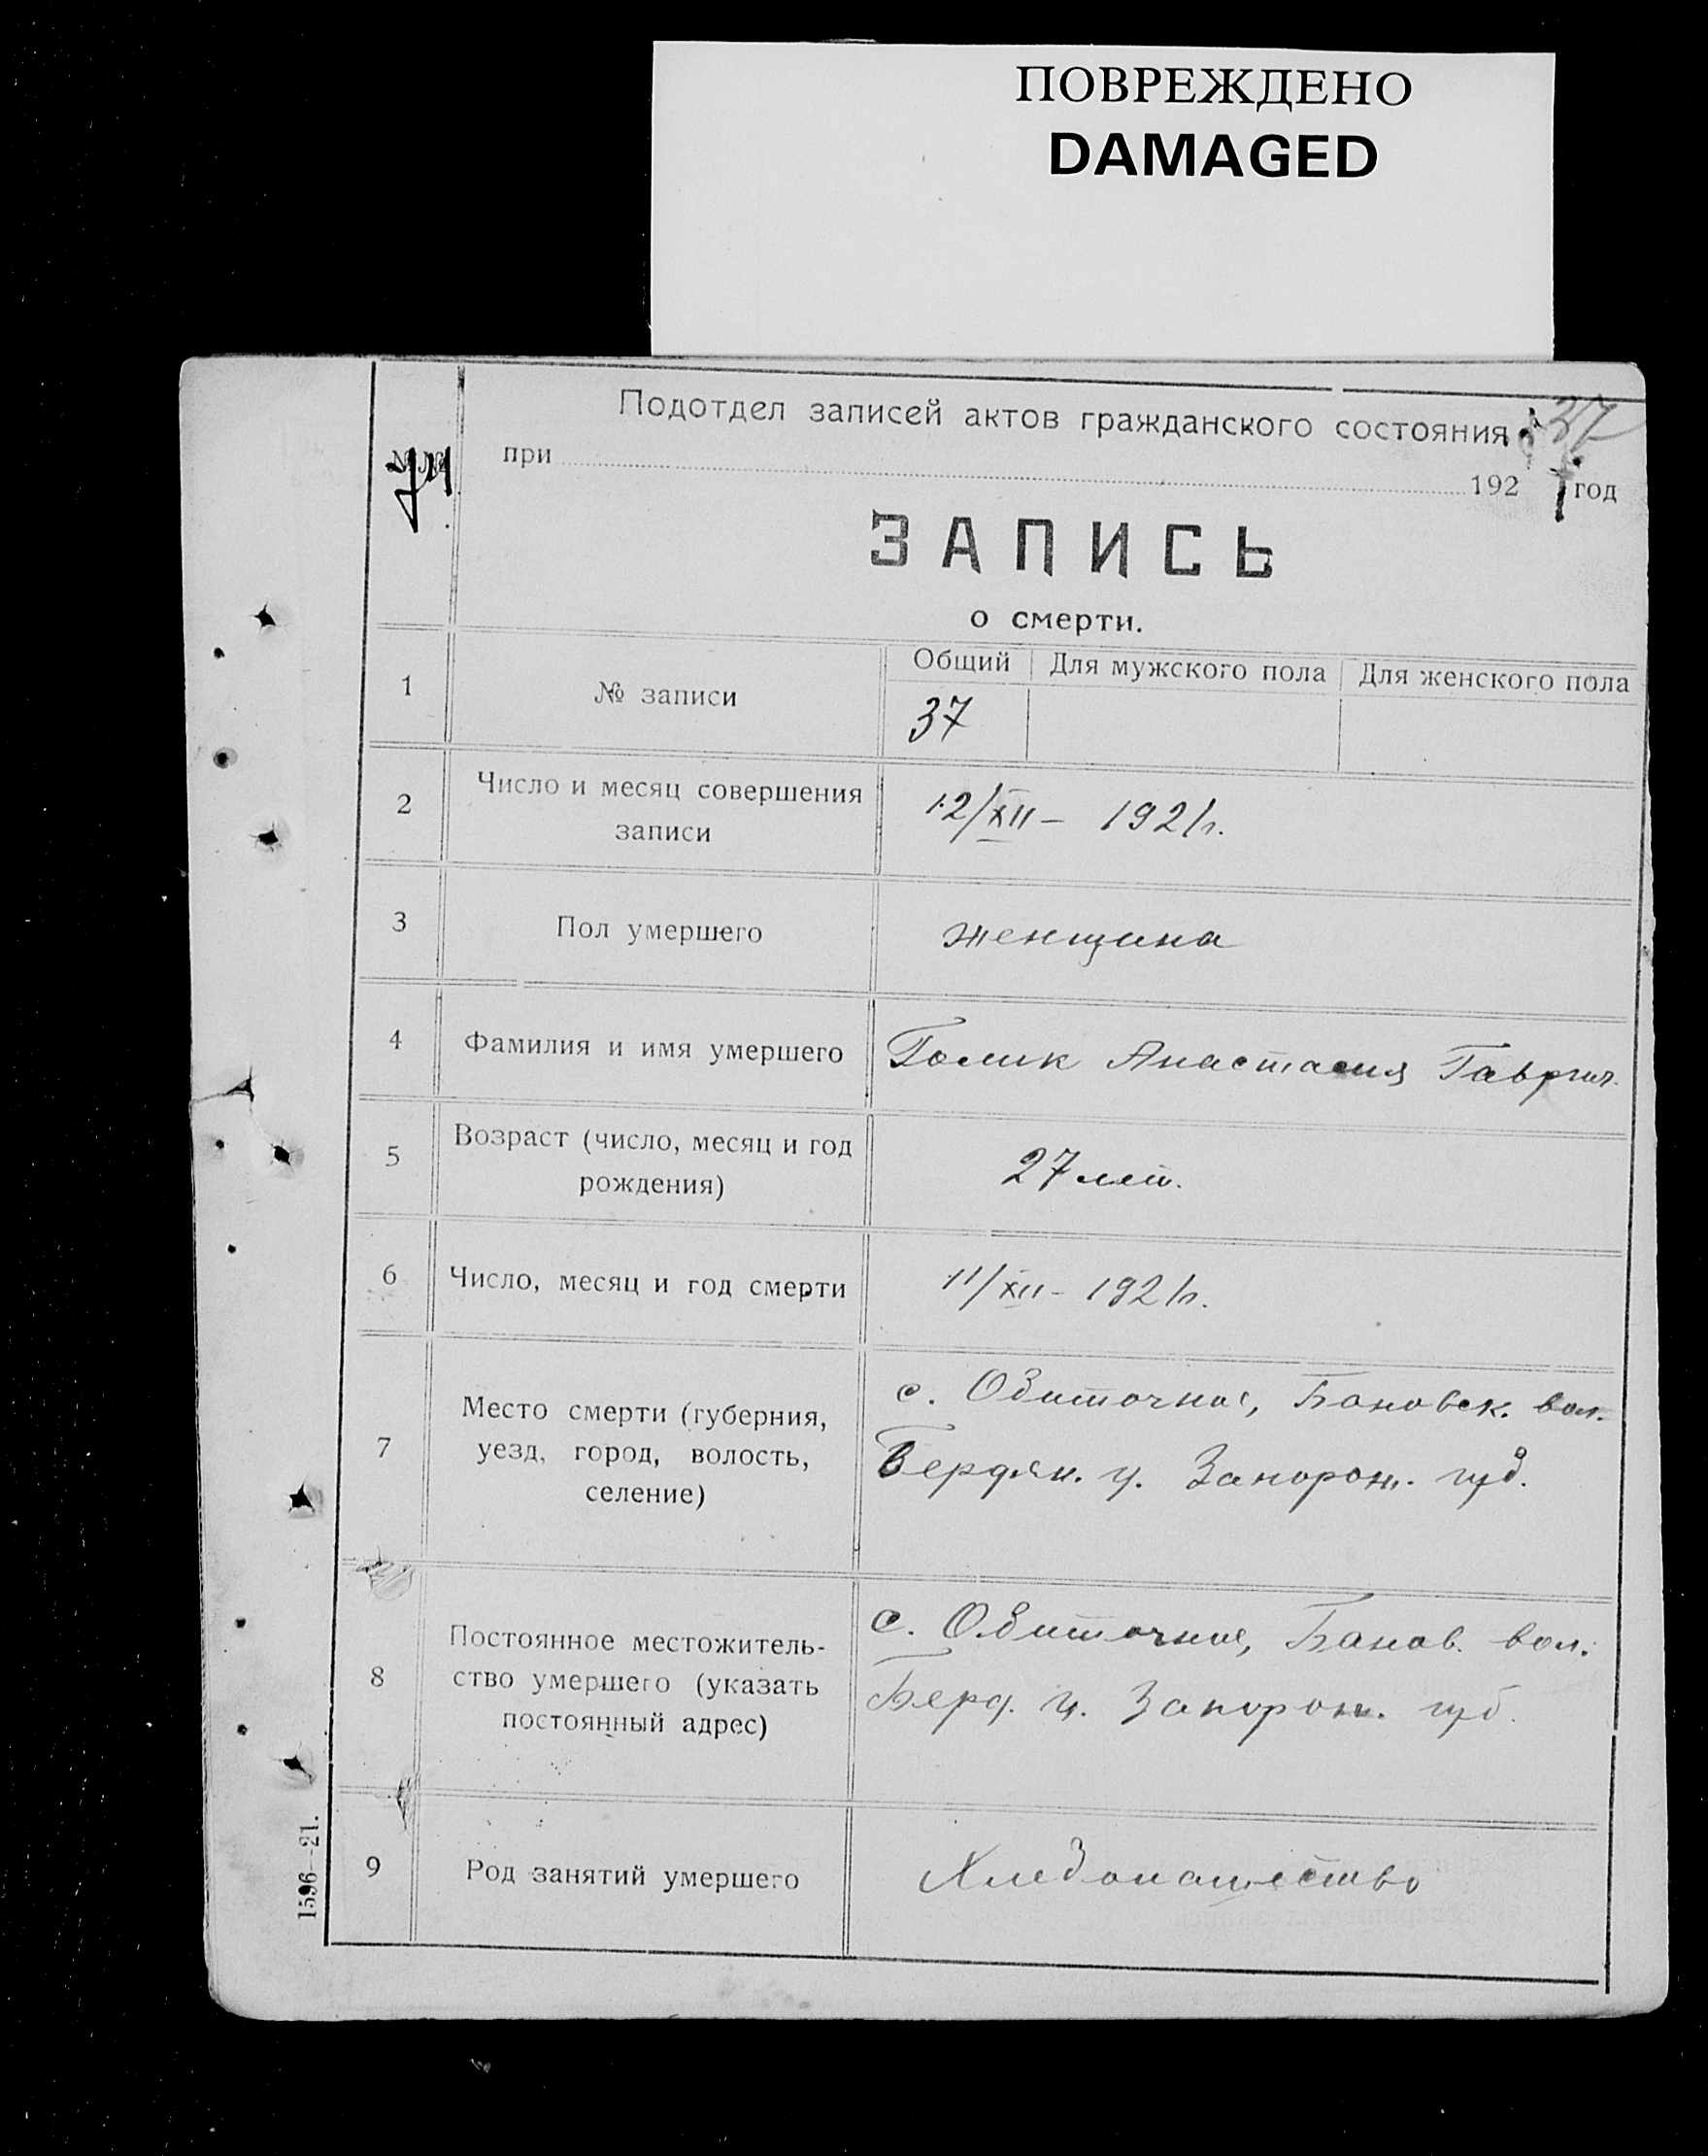 ПОВРЕЖДЕНО
DAMAGED
Подотдел записей актов гражданского состояния
37
при 192 1 год
ЗАПИСЬ
о смерти.
Общий Для мужского пола Для женского пола
1 № записи 37
2 Число и месяц совершения записи
12/XII – 1921 г.
3 Пол умершего женщина
4 Фамилия и имя умершего Голик Анастасия Гаврил.
5 Возраст (число, месяц и год рождения)
27 лет.
6 Число, месяц и год смерти 11/XII – 1921 г.
7 Место смерти (губерния,
уезд, город, волость,
селение)
с. Обиточное, Бановск. вол.
Бердян. у. Запорож. губ.
8 Постоянное местожитель-
ство умершего (указать
постоянный адрес)
с. Обиточное, Банов. вол.
Берд. у. Запорож. губ.
9 Род занятий умершего Хлебопашество
1596—21.